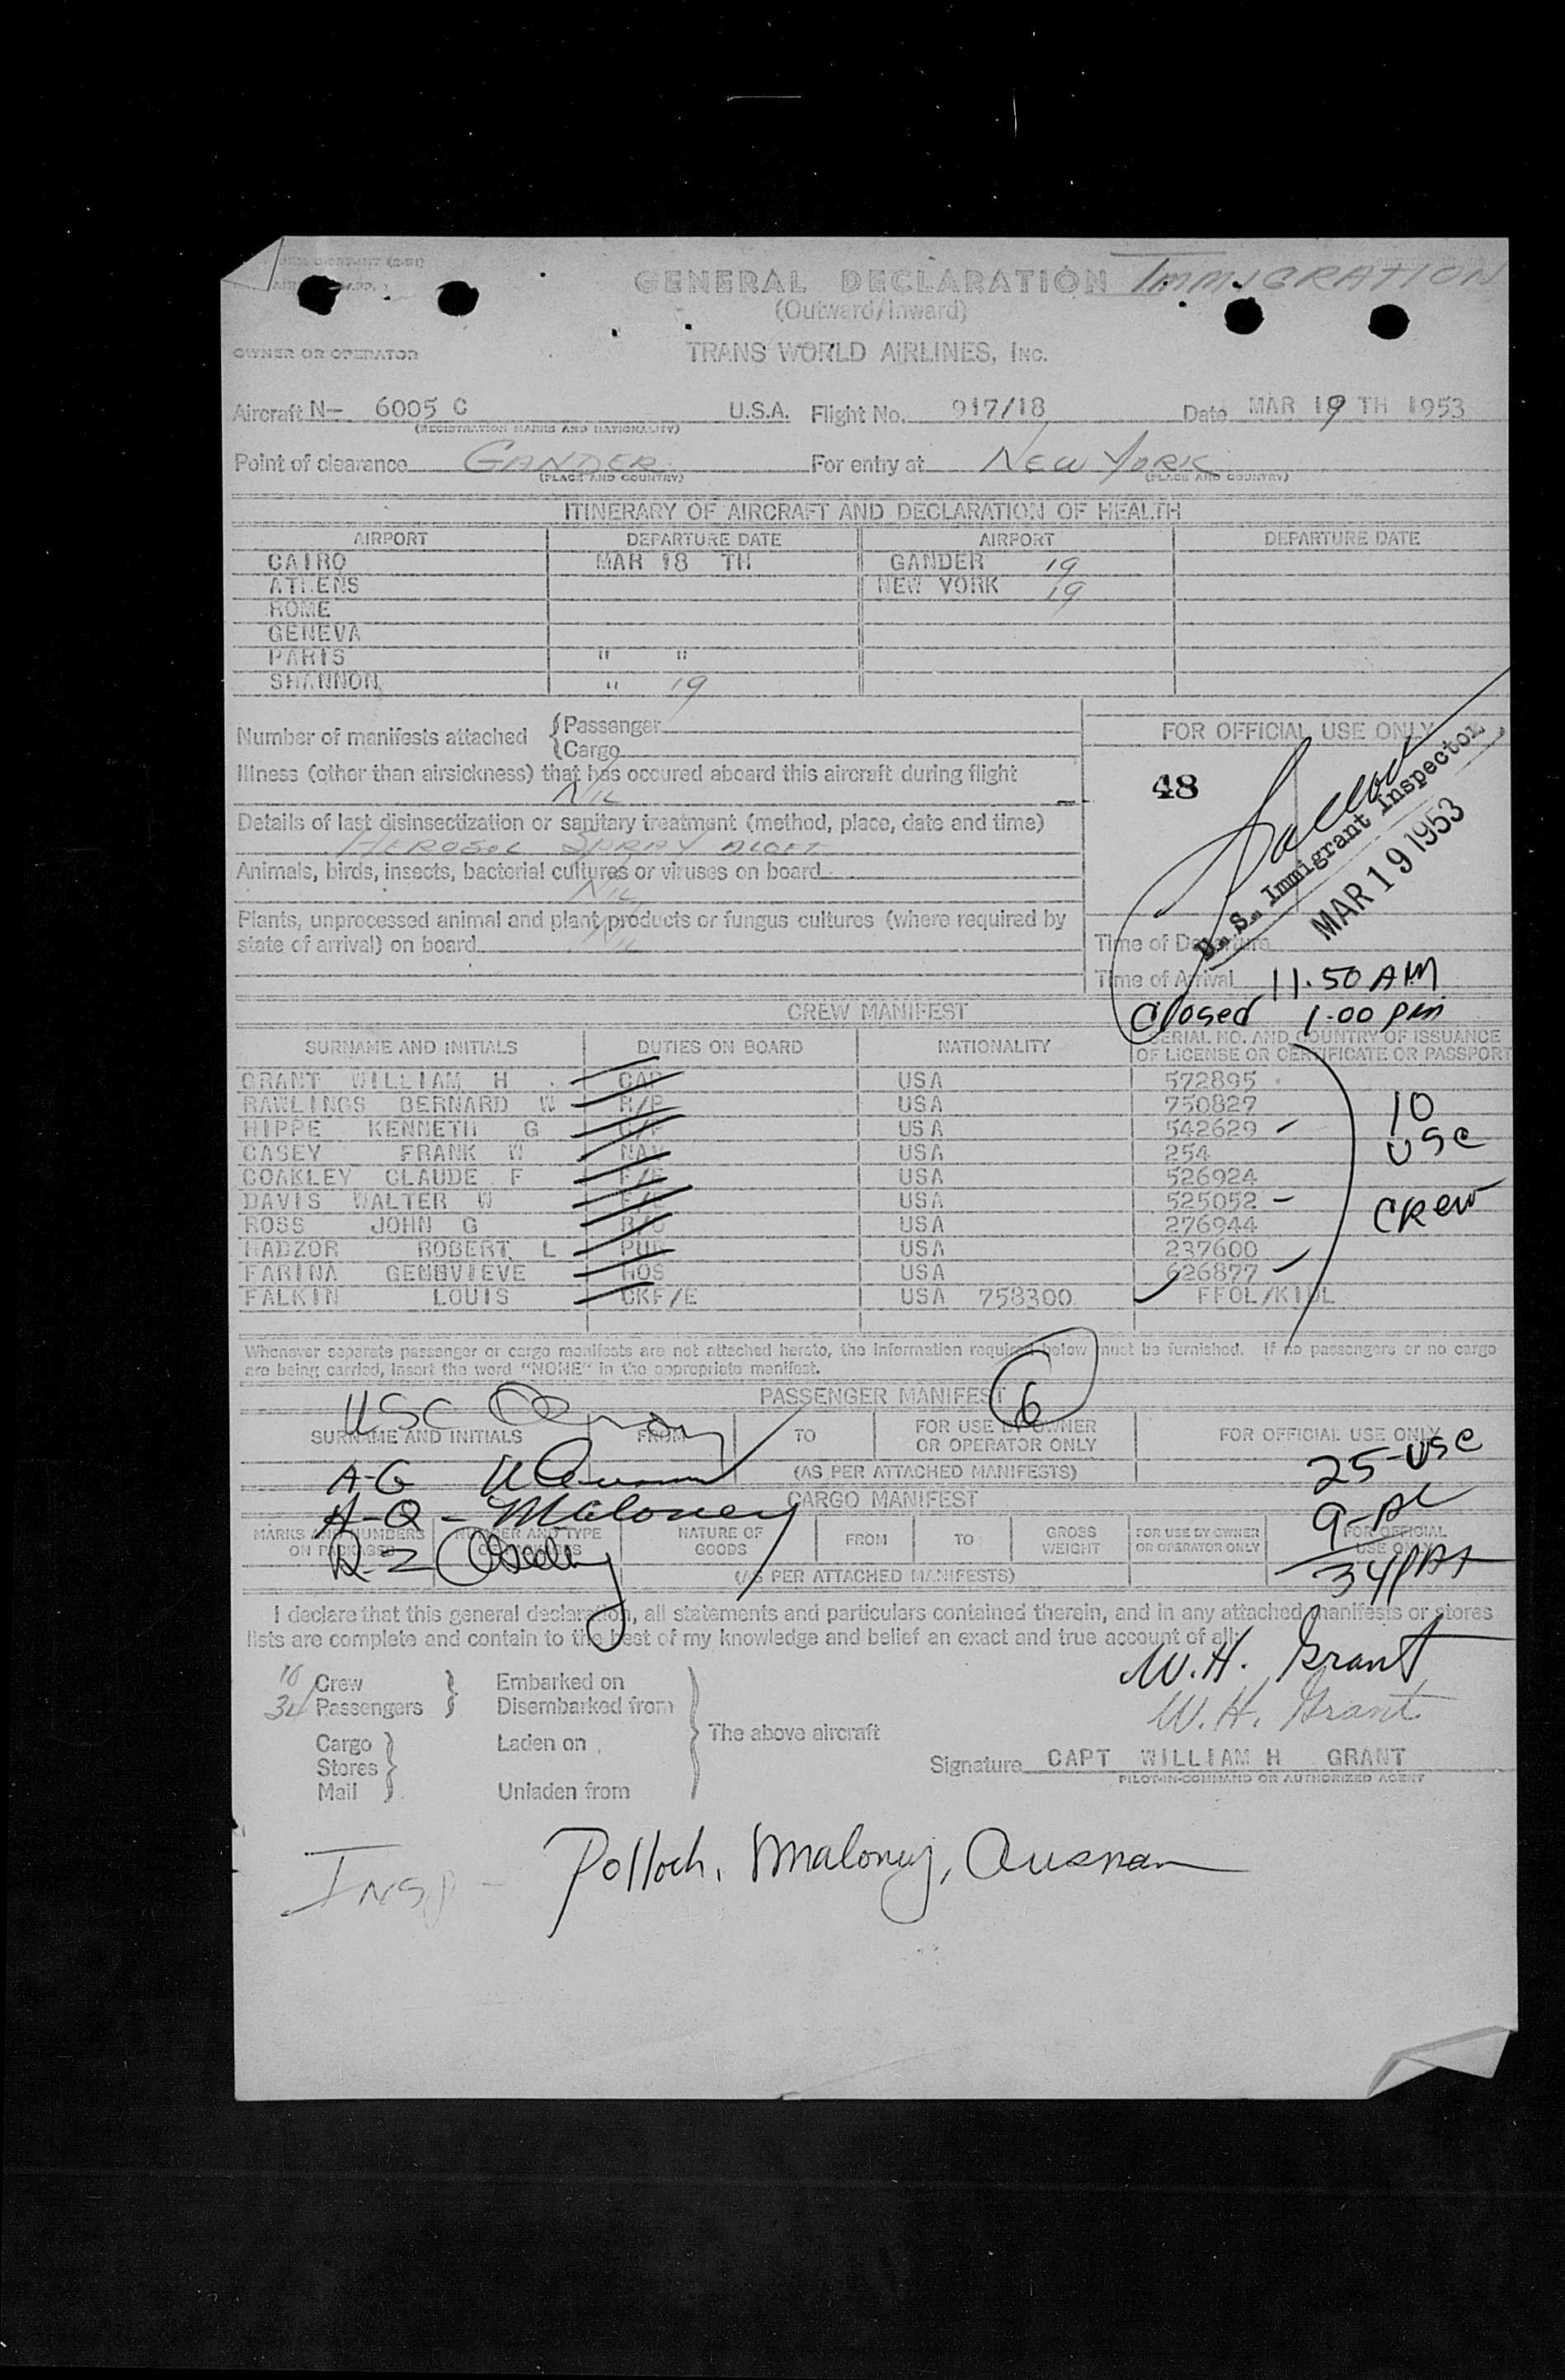 GENERAL DECLARATION IMMIGRATION
(Outward/Inward)
OWNER OR OPERATOR TRANS WORLD AIRLINES, INC.
Aircraft N- 6005 C U.S.A. Flight No. 917/18 Date MAR 19 TH 1953
(REGISTRATION MARKS AND NATIONALITY)
Point of clearance GANDER For entry at NEW YORK
(PLACE AND COUNTRY) (PLACE AND COUNTRY)
ITINERARY OF AIRCRAFT AND DECLARATION OF HEALTH
AIRPORT DEPARTURE DATE AIRPORT DEPARTURE DATE
CAIRO MAR 18 TH GANDER 19
ATHENS NEW YORK 19
ROME
GENEVA
PARIS " "
SHANNON " 19
Number of manifests attached {Passenger
{Cargo
FOR OFFICIAL USE ONLY
Illness (other than airsickness) that has occured aboard this aircraft during flight
NIL
48
U.S. Immigrant Inspector
MAR 19 1953
Details of last disinsectization or sanitary treatment (method, place, date and time)
AEROSOL SPRAY ALOFT
Animals, birds, insects, bacterial cultures or viruses on board
NIL
Plants, unprocessed animal and plant products or fungus cultures (where required by
state of arrival) on board NIL
Time of Departure
Time of Arrival 11.50 AM
Closed 1.00 PM
CREW MANIFEST
SURNAME AND INITIALS DUTIES ON BOARD NATIONALITY SERIAL NO. AND COUNTRY OF ISSUANCE
OF LICENSE OR CERTIFICATE OR PASSPORT
GRANT WILLIAM H CAP USA 572895
RAWLINGS BERNARD W R/P USA 750827
HIPPE KENNETH G USA 542629
CASEY FRANK W NAV USA 254
COAKLEY CLAUDE F F/E USA 526924
DAVIS WALTER W USA 525052
ROSS JOHN G R/O USA 276944
HADZOR ROBERT L PUR USA 237600
FARINA GENEVIEVE HOS USA 626877
FALKIN LOUIS CKF/E USA 758300 FFOL/KIDL
10
USC
Crew
Whenever separate passenger or cargo manifests are not attached hereto, the information required below must be furnished. If no passengers or no cargo
are being carried, insert the word "NONE" in the appropriate manifest.
PASSENGER MANIFEST 6
USC
SURNAME AND INITIALS FROM TO FOR USE BY OWNER
OR OPERATOR ONLY FOR OFFICIAL USE ONLY
25-USC
A-G (AS PER ATTACHED MANIFESTS)
H-Q - Maloney CARGO MANIFEST
9-AL
MARKS AND NUMBERS
ON PACKAGES NUMBER AND TYPE
OF PACKAGES NATURE OF
GOODS FROM TO GROSS
WEIGHT FOR USE BY OWNER
OR OPERATOR ONLY FOR OFFICIAL
USE ONLY
R-Z (AS PER ATTACHED MANIFESTS) 34
I declare that this general declaration, all statements and particulars contained therein, and in any attached manifests or stores
lists are complete and contain to the best of my knowledge and belief an exact and true account of all:
W.H. Grant
W.H. Grant
10 Crew } Embarked on
34 Passengers } Disembarked from
The above aircraft
Cargo } Laden on
Stores
Mail } Unladen from
Signature CAPT WILLIAM H GRANT
PILOT-IN-COMMAND OR AUTHORIZED AGENT
Insp - Pollock, Maloney,